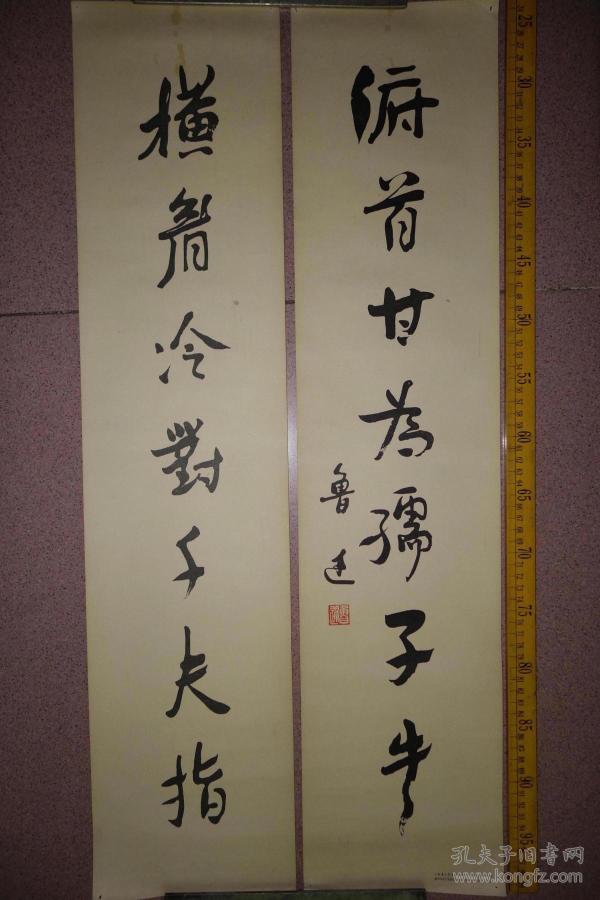 橫眉冷對千夫指
俯首甘為孺子牛
魯迅
25
30
35
40
45
50
55
60
65
70
75
80
85
90
95
孔夫子旧书网
www.kongfz.com